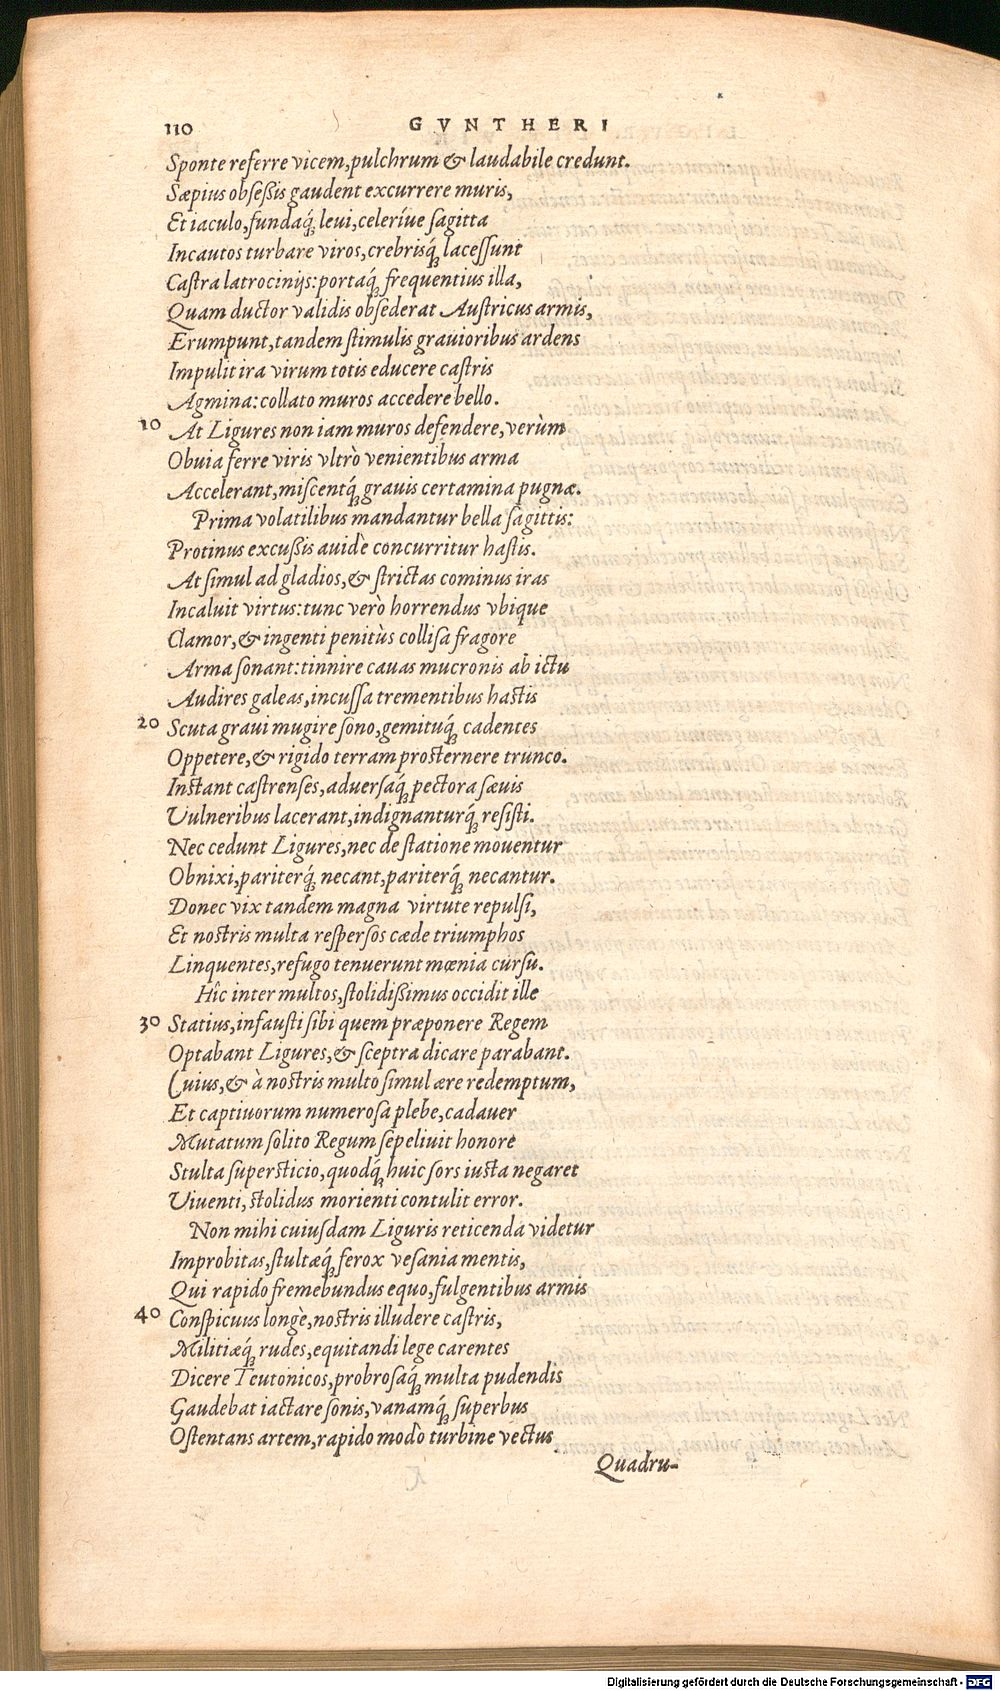 110 GVNTHERI
Sponte referre vicem, pulchrum & laudabile credunt.
Sæpius obseßis gaudent excurrere muris,
Et iaculo, fundaq́; leui, celeríue sagitta
Incautos turbare viros, crebrisq́; lacessunt
Castra latrocinijs: portaq́; frequentius illa,
Quam ductor validis obsederat Austricus armis,
Erumpunt, tandem stimulis grauioribus ardens
Impulit ira virum totis educere castris
Agmina: collato muros accedere bello.
10 At Ligures non iam muros defendere, verùm
Obuia ferre viris vltrò venientibus arma
Accelerant, miscentq́; grauis certamina pugnæ.
Prima volatilibus mandantur bella sagittis:
Protinus excußis auidè concurritur hastis.
At simul ad gladios, & strictas cominus iras
Incaluit virtus: tunc verò horrendus vbique
Clamor, & ingenti penitùs collisa fragore
Arma sonant: tinnire cauas mucronis ab ictu
Audires galeas, incussa trementibus hastis
20 Scuta graui mugire sono, gemituq́; cadentes
Oppetere, & rigido terram prosternere trunco.
Instant castrenses, aduersaq́; pectora sæuis
Vulneribus lacerant, indignanturq́; resisti.
Nec cedunt Ligures, nec de statione mouentur
Obnixi, pariterq́; necant, pariterq́; necantur.
Donec vix tandem magna virtute repulsi,
Et nostris multa respersos cæde triumphos
Linquentes, refugo tenuerunt mœnia cursu.
Hîc inter multos, stolidißimus occidit ille
30 Statius, infausti sibi quem præponere Regem
Optabant Ligures, & sceptra dicare parabant.
Cuius, & à nostris multo simul ære redemptum,
Et captiuorum numerosa plebe, cadauer
Mutatum solito Regum sepeliuit honore
Stulta supersticio, quodq́; huic sors iusta negaret
Viuenti, stolidus morienti contulit error.
Non mihi cuiusdam Liguris reticenda videtur
Improbitas, stultæq́; ferox vesania mentis,
Qui rapido fremebundus equo, fulgentibus armis
40 Conspicuus longè, nostris illudere castris,
Militiæq́; rudes, equitandi lege carentes
Dicere Teutonicos, probrosaq́; multa pudendis
Gaudebat iactare sonis, vanamq́; superbus
Ostentans artem, rapido modò turbine vectus
Quadru-
Digitalisierung gefördert durch die Deutsche Forschungsgemeinschaft - DFG